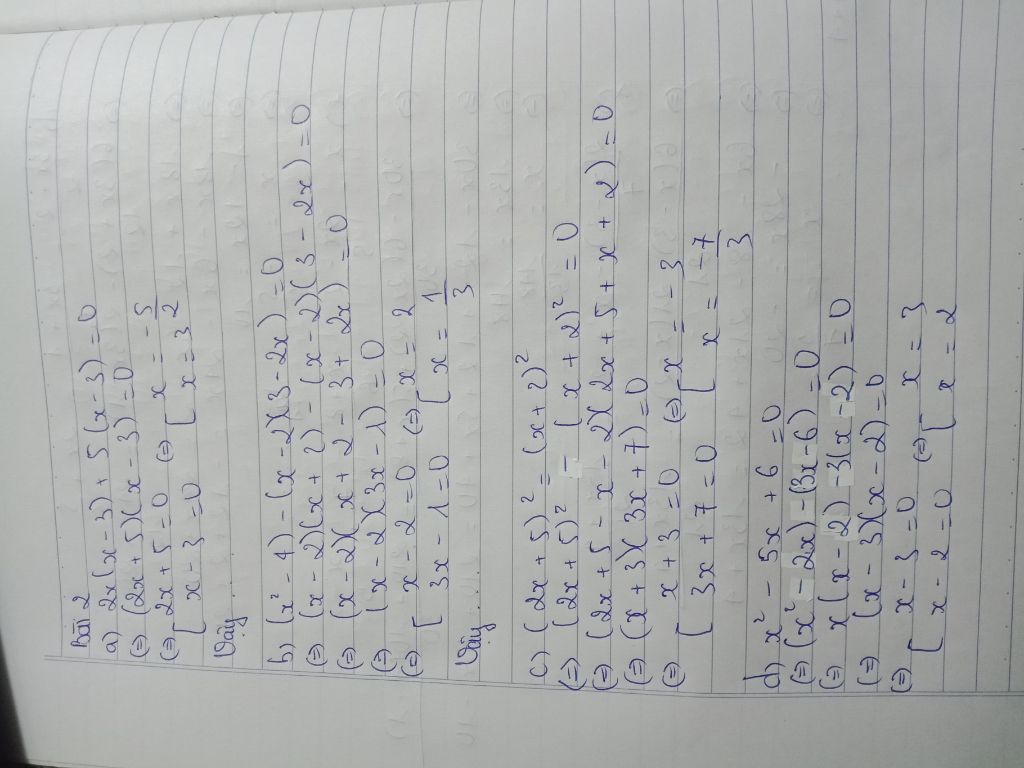 Bài 2
a) 2x(x - 3) + 5(x - 3) = 0
(=) (2x + 5)(x - 3) = 0
(=) [ 2x + 5 = 0 (=) [ x = -5/2
x - 3 = 0 x = 3
Vậy
b) (x² - 4) - (x - 2)(3 - 2x) = 0
(=) (x - 2)(x + 2) - (x - 2)(3 - 2x) = 0
(=) (x - 2)(x + 2 - 3 + 2x) = 0
(=) (x - 2)(3x - 1) = 0
(=) [ x - 2 = 0 (=) [ x = 2
3x - 1 = 0 x = 1/3
Vậy
c) (2x + 5)² = (x + 2)²
(=) (2x + 5)² - (x + 2)² = 0
(=) (2x + 5 - x - 2)(2x + 5 + x + 2) = 0
(=) (x + 3)(3x + 7) = 0
(=) [ x + 3 = 0 (=) [ x = - 3
3x + 7 = 0 x = -7/3
d) x² - 5x + 6 = 0
(=) (x² - 2x) - (3x - 6) = 0
(=) x(x - 2) - 3(x - 2) = 0
(=) (x - 3)(x - 2) = 0
(=) [ x - 3 = 0 (=) [ x = 3
x - 2 = 0 x = 2